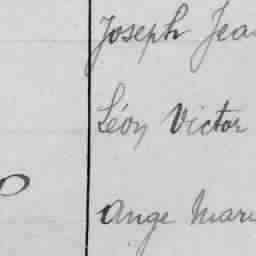 Joseph Jea
Léon Victor
Ange Mari